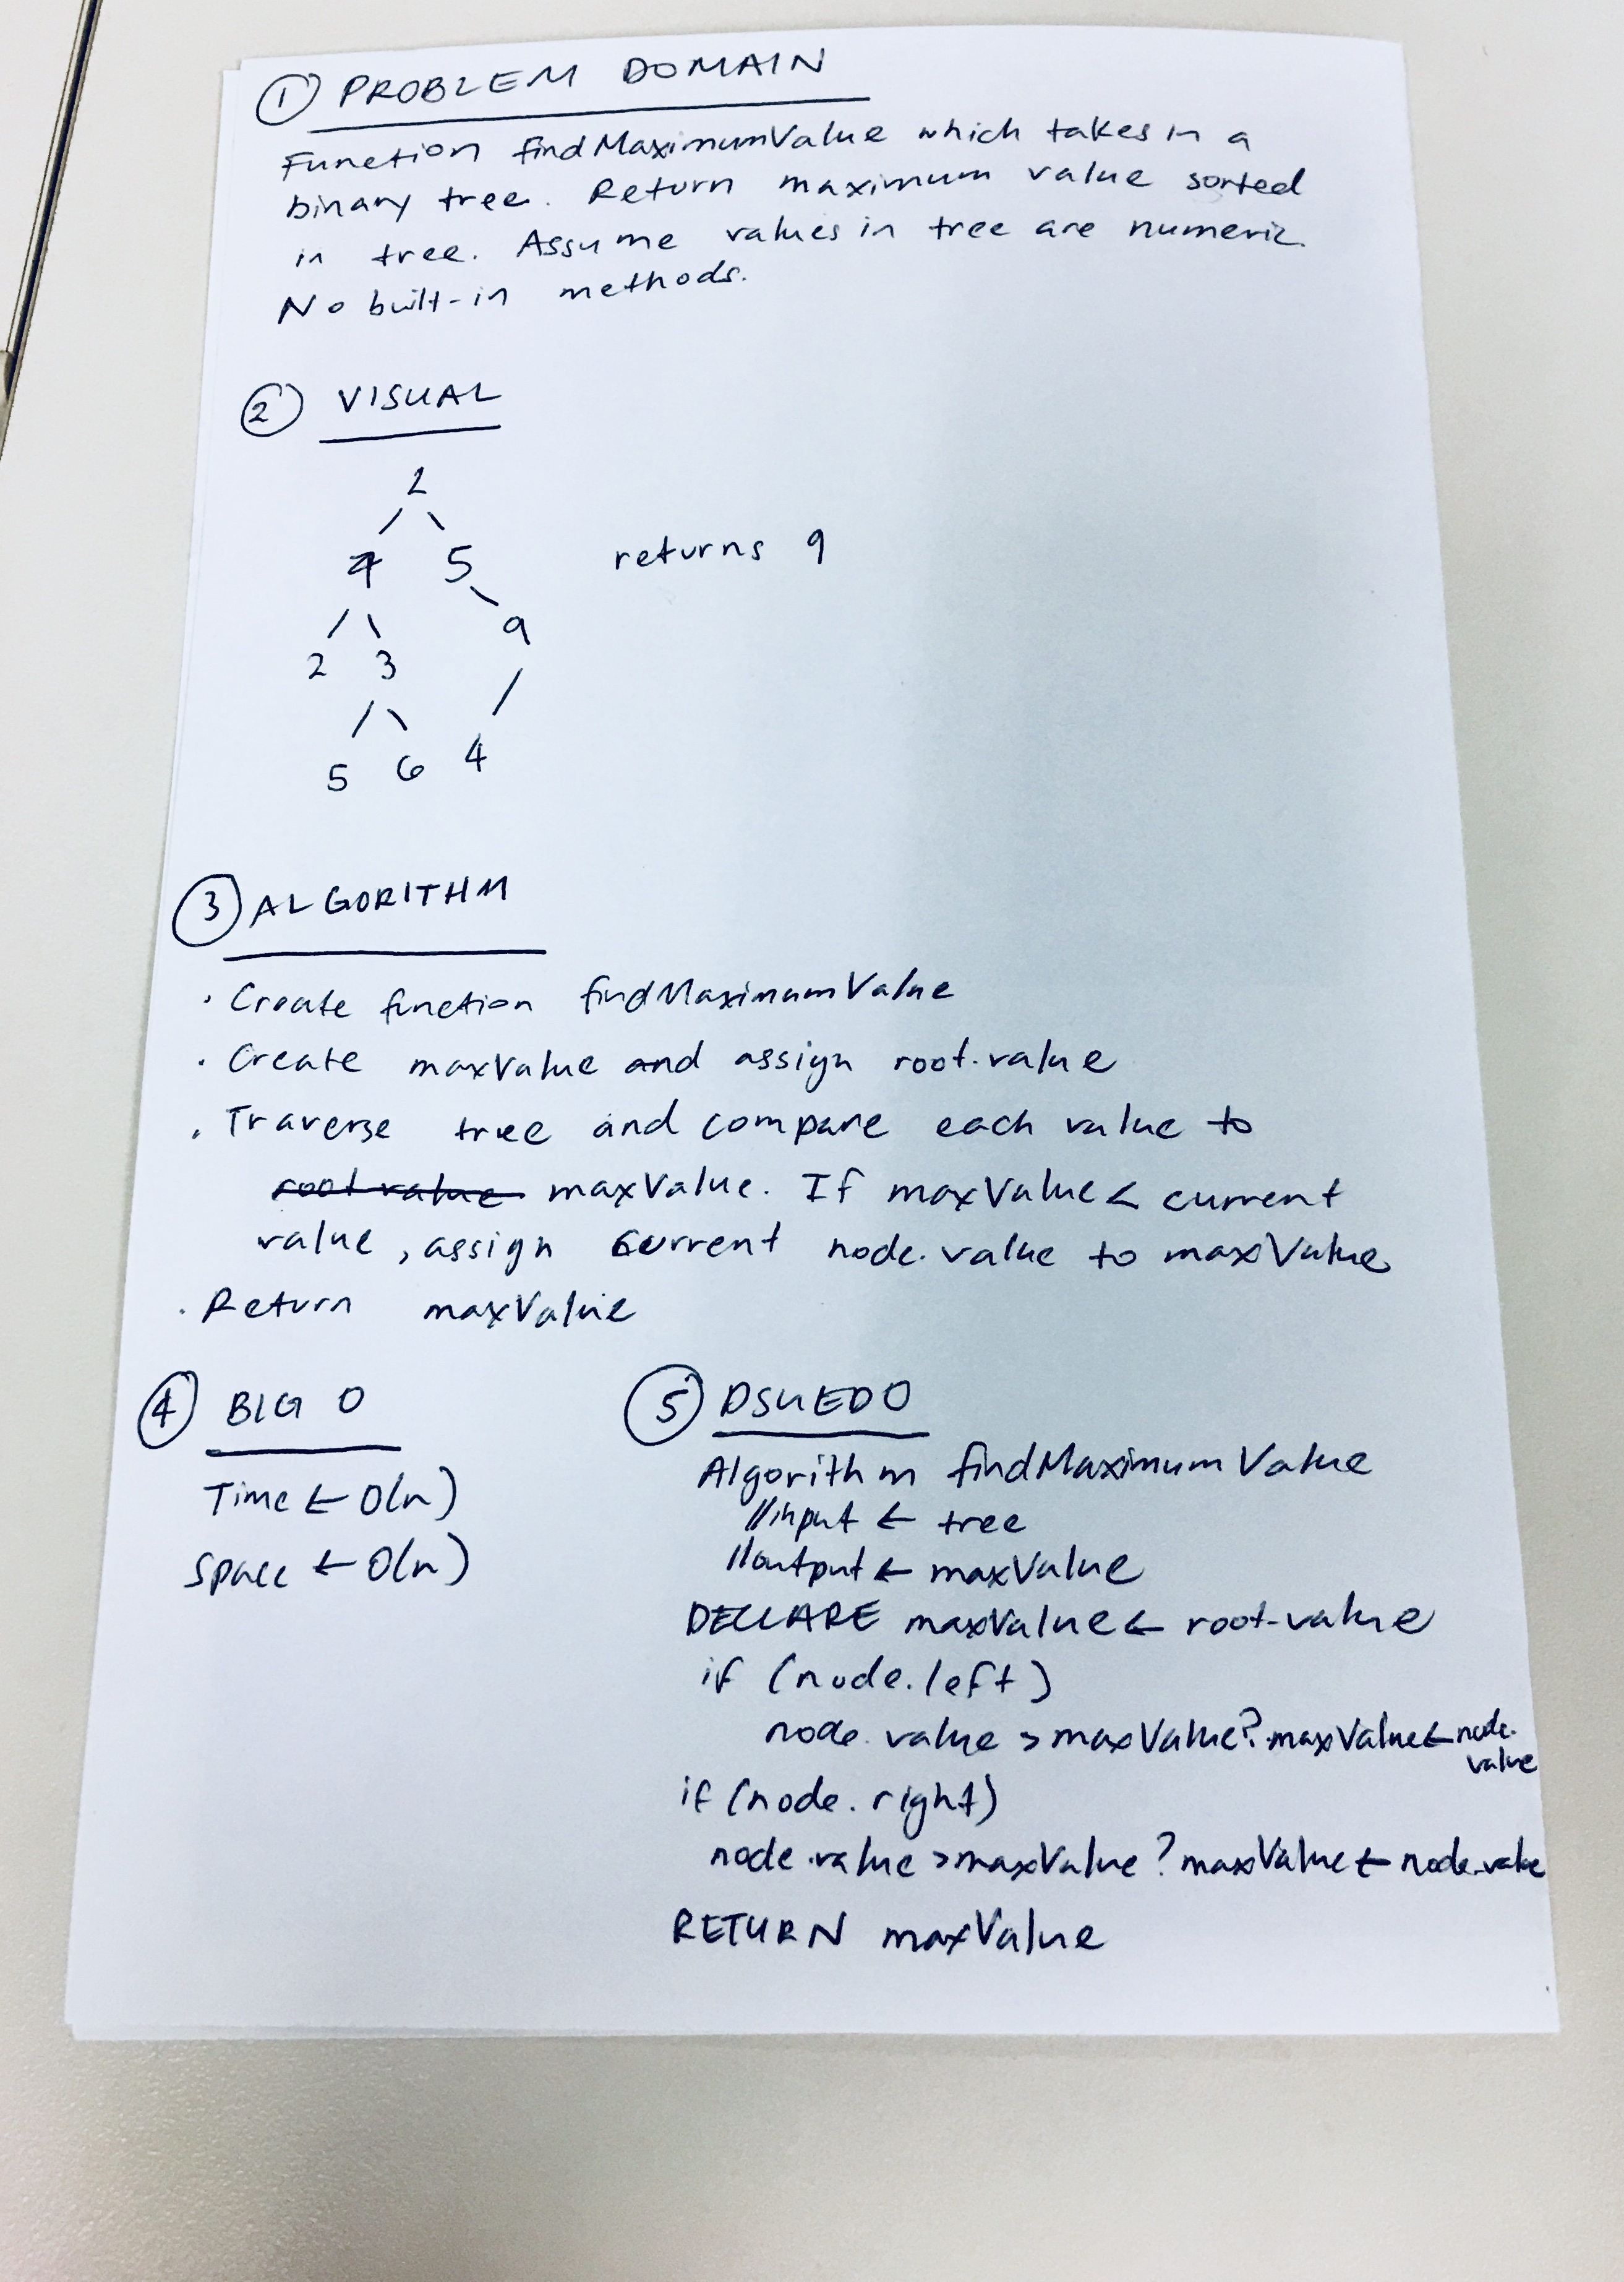 ① PROBLEM DOMAIN
Function findMaximumValue which takes in a
binary tree. Return maximum value sorted
in tree. Assume values in tree are numeric.
No built-in methods.
② VISUAL
2
/ \
7 5
returns 9
\
/ \
9
2 3
/
/ \
5 6 4
③ ALGORITHM
· Create function findMaximumValue
· Create maxValue and assign root.value
· Traverse tree and compare each value to
root value maxValue. If maxValue < current
value, assign current node.value to maxValue
· Return maxValue
④ BIG O
Time ← O(n)
Space ← O(n)
⑤ PSUEDO
Algorithm findMaximumValue
//input ← tree
//output ← maxValue
DECLARE maxValue ← root.value
if (node.left)
node.value > maxValue? maxValue ← node.
value
if (node.right)
node.value > maxValue ? maxValue ← node.value
RETURN maxValue